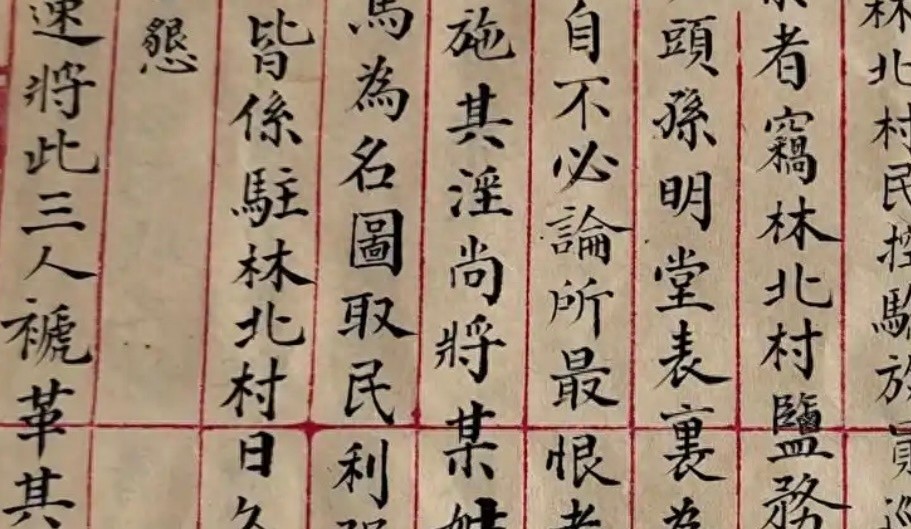 林北村民控駐於貝巡
者竊林北村鹽務
頭孫明堂表裏為
自不必論所最恨者
施其淫尚將某
馬為名圖取民利
皆係駐林北村日久
懇
速將此三人褫革其